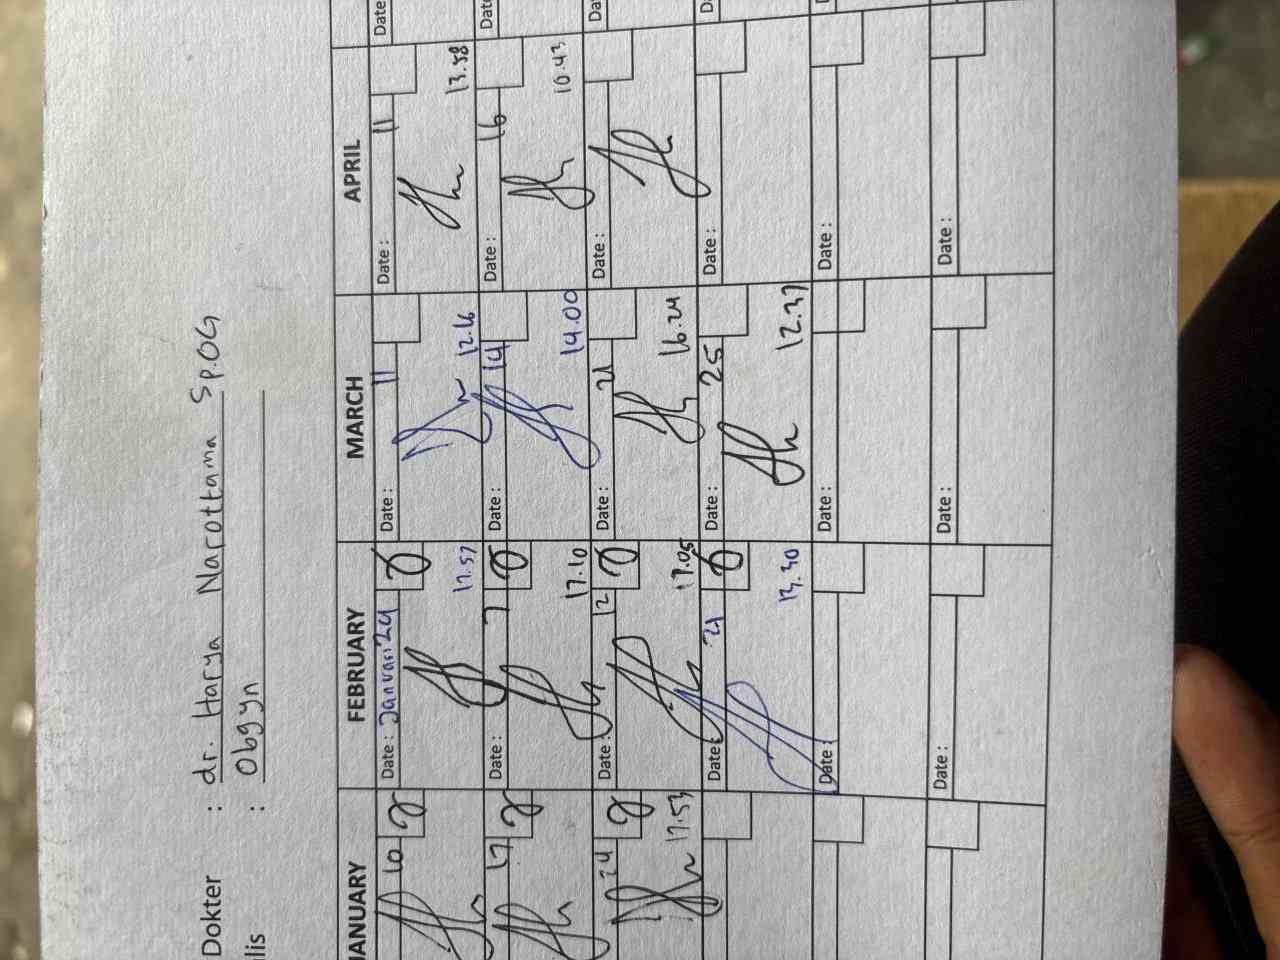 Dokter : dr. Harya Narottama Sp.OG
lis : Obgyn
JANUARY FEBRUARY MARCH APRIL
10 Date : Januari 29 Date : 11 Date : 11 Date
17.57 12.16 13.58
17 Date : 7 Date : 14 Date : 16 Date
17.10 14.00 10.43
24 Date : 12 Date : 21 Date : Date
17.53 17.05 16.24
Date : 21 Date : 25 Date : D
13.30 12.37
Date : Date : Date :
Date : Date : Date :